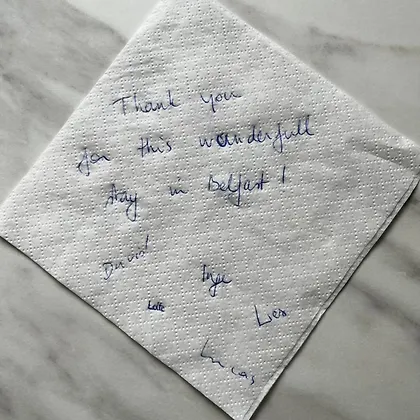 Thank you
for this wonderfull
stay in Belfast!
David
Inge
Lotte
Lies
Lucas